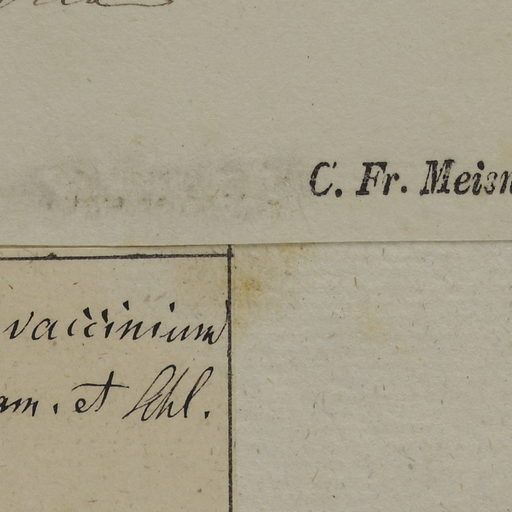 C. Fr. Meisn
vaccinium
am. et Schl.